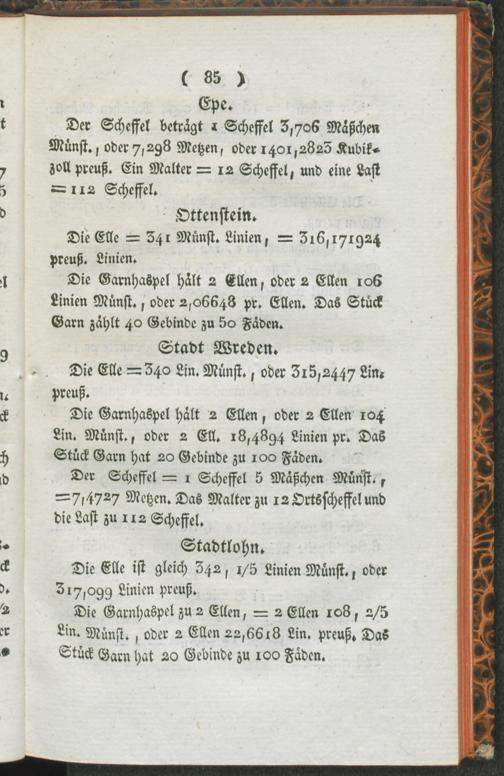 ( 85 )
Epe.
Der Scheffel beträgt 1 Scheffel 3,706 Mäßchen
Münst., oder 7,298 Metzen, oder 1401,2823 Kubik-
zoll preuß. Ein Malter = 12 Scheffel, und eine Last
= 112 Scheffel.
Ottenstein.
Die Elle = 341 Münst. Linien, = 316,171924
preuß. Linien.
Die Garnhaspel hält 2 Ellen, oder 2 Ellen 106
Linien Münst., oder 2,06648 pr. Ellen. Das Stück
Garn zählt 40 Gebinde zu 50 Fäden.
Stadt Wreden.
Die Elle = 340 Lin. Münst., oder 315,2447 Lin.
preuß.
Die Garnhaspel hält 2 Ellen, oder 2 Ellen 104
Lin. Münst., oder 2 Ell. 18,4894 Linien pr. Das
Stück Garn hat 20 Gebinde zu 100 Fäden.
Der Scheffel = 1 Scheffel 5 Mäßchen Münst.,
= 7,4727 Metzen. Das Malter zu 12 Ortsscheffel und
die Last zu 112 Scheffel.
Stadtlohn.
Die Elle ist gleich 342, 1/5 Linien Münst., oder
317,099 Linien preuß.
Die Garnhaspel zu 2 Ellen, = 2 Ellen 108, 2/5
Lin. Münst., oder 2 Ellen 22,6618 Lin. preuß. Das
Stück Garn hat 20 Gebinde zu 100 Fäden.